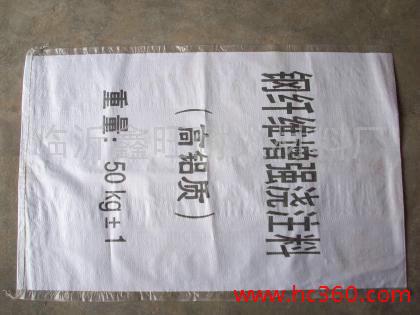 钢纤维增强浇注料
（高铝质）
重量：50kg±1
www.hc360.com